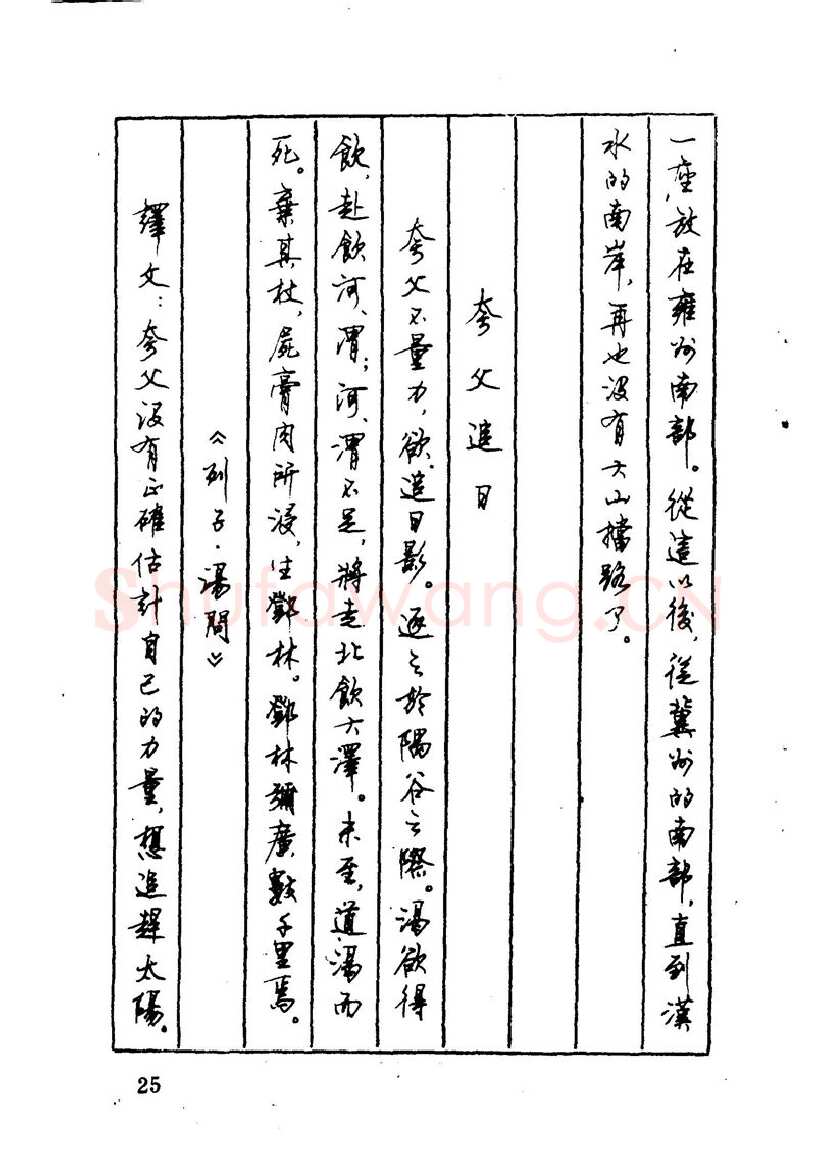 一座放在雍州南部。從這以後,從冀州的南部,直到漢
水的南岸,再也没有大山擋路了。
夸父追日
夸父不量力,欲追日影。逐之於隅谷之際。渴欲得
飲,赴飲河、渭;河、渭不足,將走北飲大澤。未至,道渴而
死。棄其杖,屍膏肉所浸,生鄧林。鄧林彌廣數千里焉。
《列子·湯問》
譯文:夸父没有正確估計自己的力量,想追趕太陽。
25
Shufawang.CN